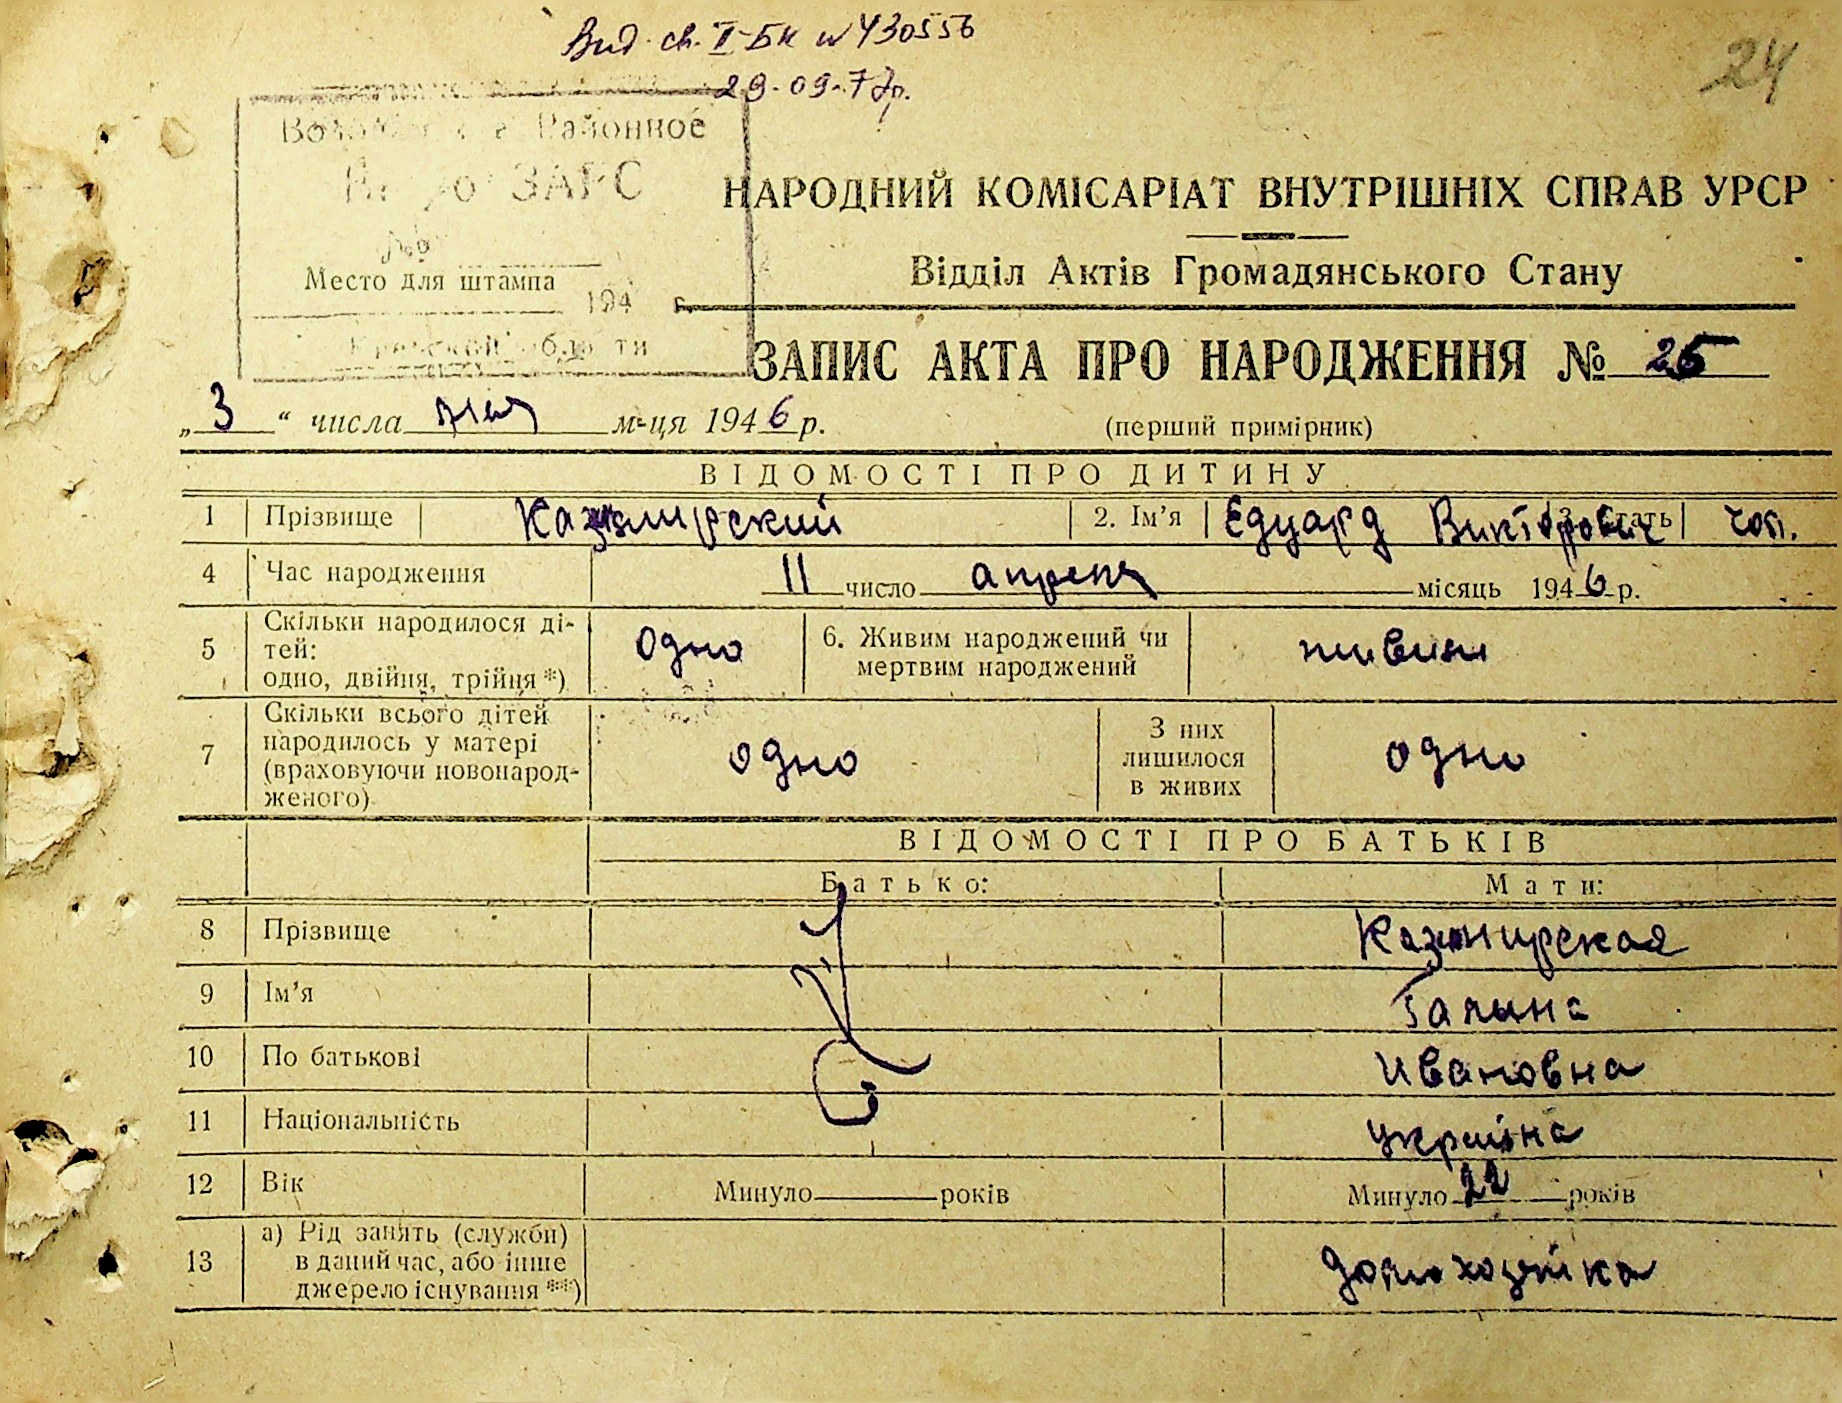 Вид. св. II-БК № 430556
29.09.77р.
24
Районное
ЗАГС
№
Место для штампа
194 г.
области
НАРОДНИЙ КОМІСАРІАТ ВНУТРІШНІХ СПРАВ УРСР
Відділ Актів Громадянського Стану
ЗАПИС АКТА ПРО НАРОДЖЕННЯ № 25
„3“ числа мая м-ця 1946 р. (перший примірник)
ВІДОМОСТІ ПРО ДИТИНУ
1 Прізвище Казимирский 2. Ім’я Едуард Викторович 3. Стать чол.
4 Час народження 11 число апреля місяць 1946 р.
5 Скільки народилося ді-
тей:
одно, двійня, трійня *) одно 6. Живим народжений чи
мертвим народжений живим
7 Скільки всього дітей
народилось у матері
(враховуючи новонарод-
женого) одно З них
лишилося
в живих одно
ВІДОМОСТІ ПРО БАТЬКІВ
Батько: Мати:
8 Прізвище Казимирская
9 Ім’я Галина
10 По батькові Ивановна
11 Національність україна
12 Вік Минуло років Минуло 22 років
13 а) Рід занять (служби)
в даний час, або інше
джерело існування **) домохозяйка